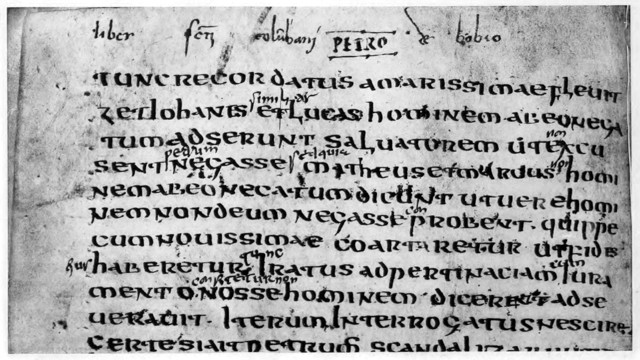 liber sc̄ti columbani de bobio
PETRO
TUNC RECORDATUS AMARISSIMAE FLEUIT
ET IOHANES similiter ET LUCAS HOMINEM AB EO NEGA
TUM ADSERUNT SALUATOREM UT EXCU non
SENT petrum NEGASSE sed quia MATHEUS ET MARCUS non HOMI
NEM AB EO NEGATUM DICUNT UT UERE HOMI
NEM NON DEUM NEGASSE PROBENT. QUIPPE
CUM NOUISSIMAE COARTARETUR UT FIDE
HABERETUR tunc IRATUS AD PERTINACIAM IURA
MENTO NOSSE HOMINEM DICERET ADSE
UERAUIT. ITERUM INTERROGATUS NESCIRE
CERTE SI AIT PETRUM SCANDALIZA